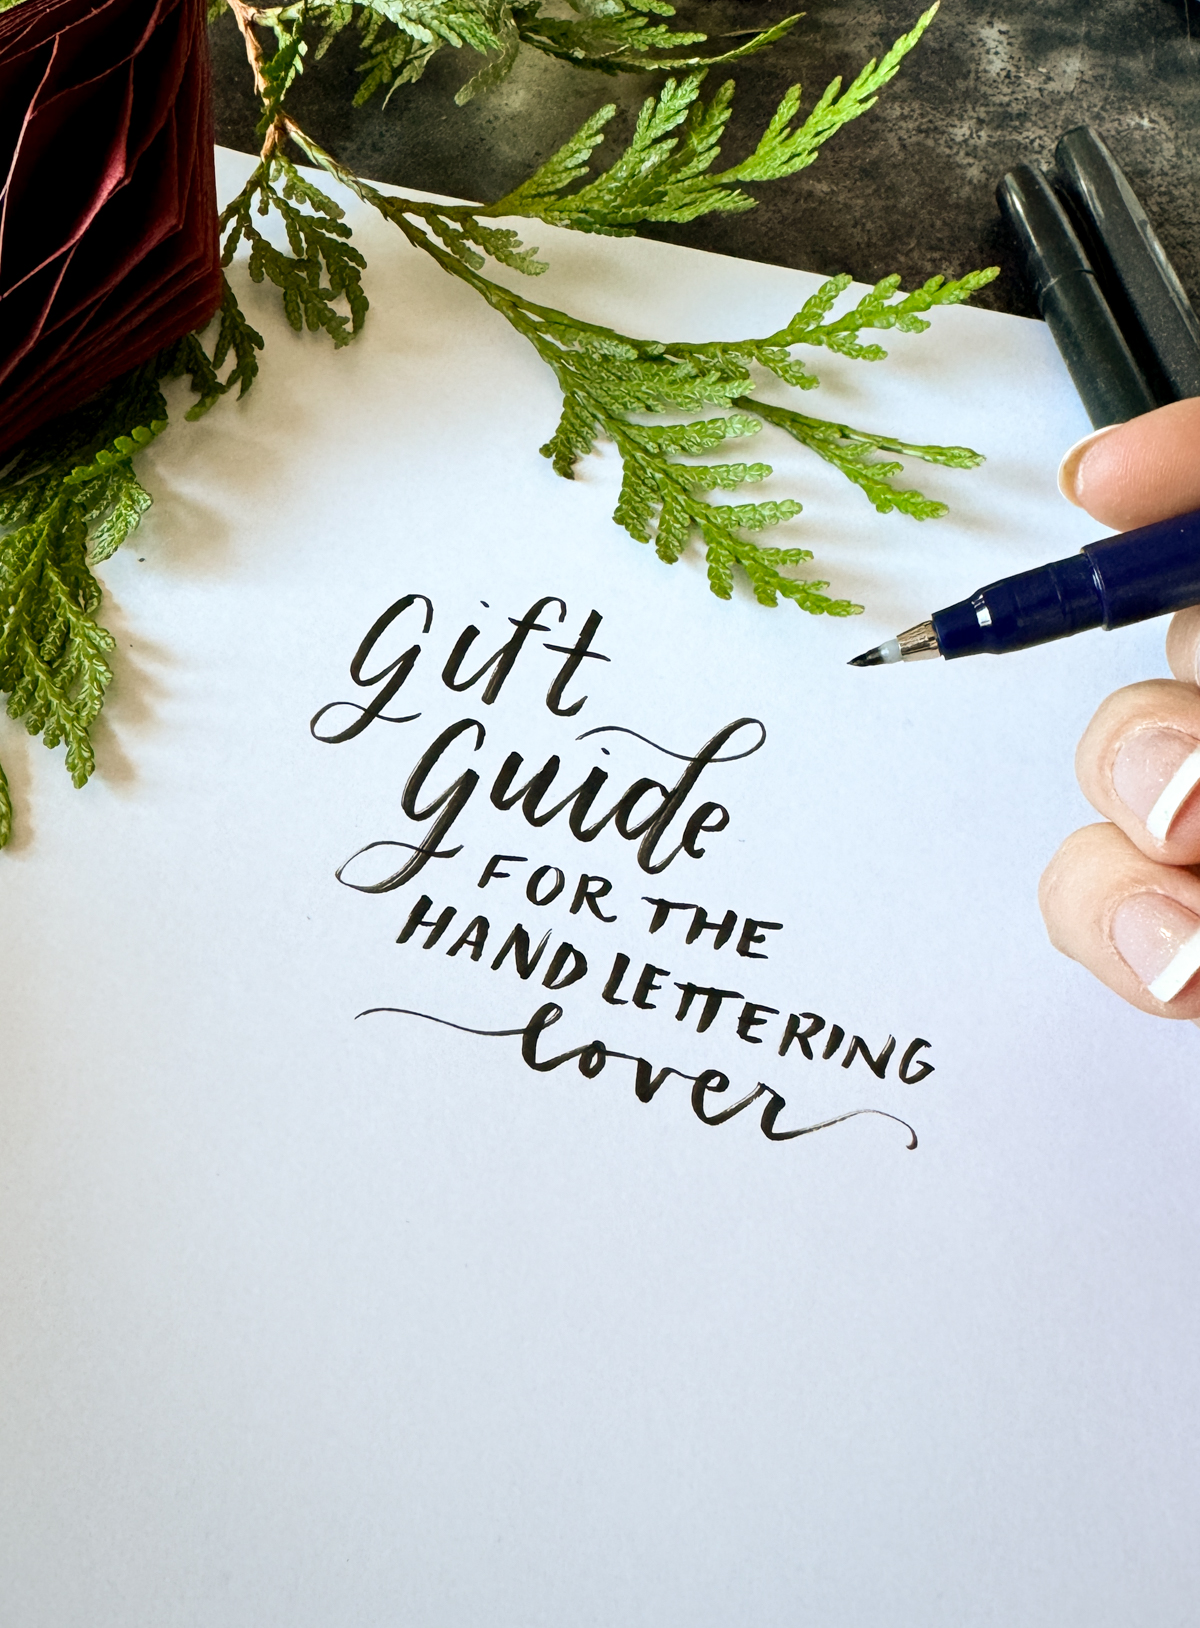 Gift
Guide
FOR THE
HAND LETTERING
lover